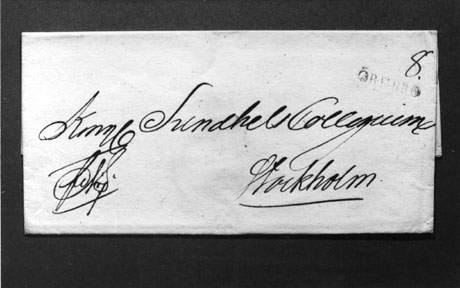 8.
ÖREBRO
Kongl Sundhets Collegium
Stockholm.